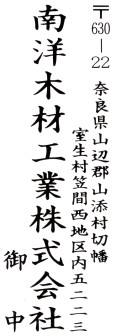 〒630－22
奈良県山辺郡山添村切幡
室生村笠間西地区内五二二三
南洋木材工業株式会社
御中